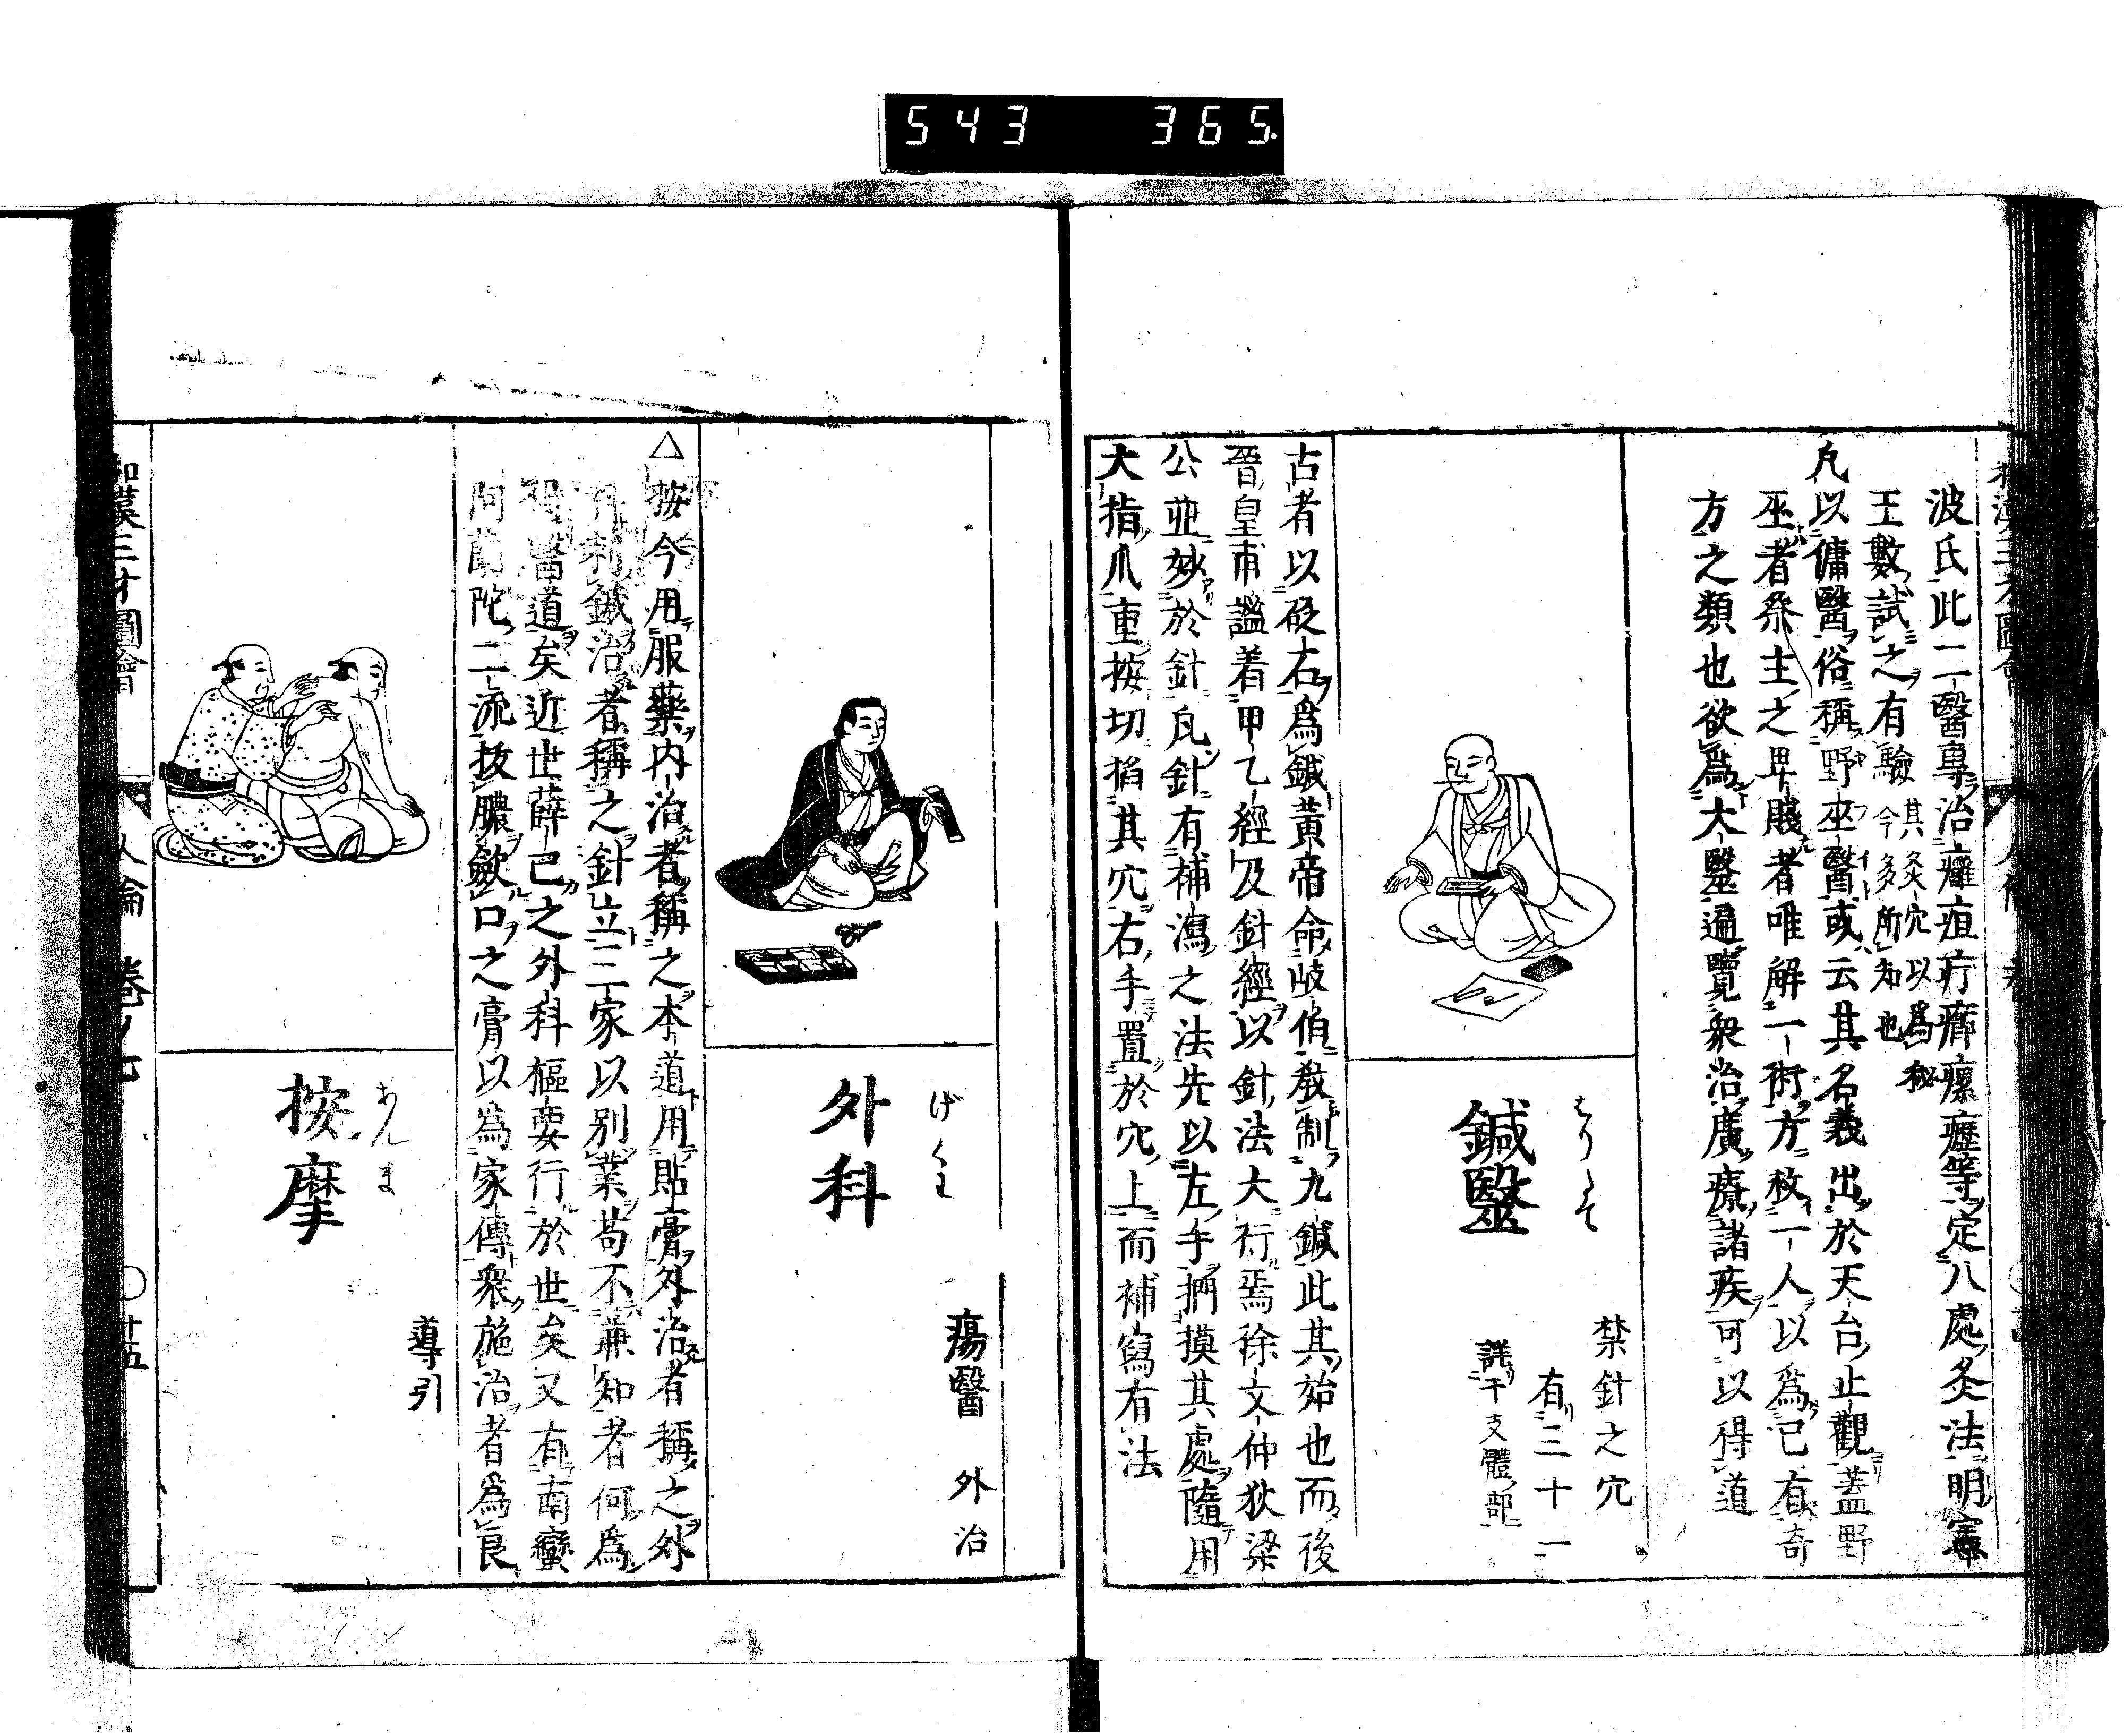 543 365.
波氏此二醫專治癰疽疔癤瘰癧等定八處灸法明憲
王數試之有驗其灸穴以爲秘
今多所知也
凡以傭醫俗稱野巫醫或云其名義出於天台止觀蓋野
巫者祭主之卑賤者唯解一術方救一人以爲已有奇
方之類也欲爲大毉遍覽衆治廣療諸疾可以得道
鍼毉
禁針之穴
有三十一
詳于支體部
古者以砭石爲鍼黃帝命岐伯敎制九鍼此其始也而後
晉皇甫謐着甲乙經及針經以針法大行焉徐文仲狄梁
公並妙於針凡針有補瀉之法先以左手捫摸其處隨用
大指爪重按切掐其穴右手置於穴上而補瀉有法
外科
げくわ
瘍醫 外治
△按今用服藥内治者稱之本道用貼膏外治者稱之外
刺鍼治者稱之針立三家以別業苟不兼知者何爲
醫道矣近世薛己之外科樞要行於世矣又有南蠻
阿蘭陀二流拔膿歛口之膏以爲家傳衆施治者爲良
按摩
あんま
導引
和漢三才圖會 人倫 卷ノ七 〇十五